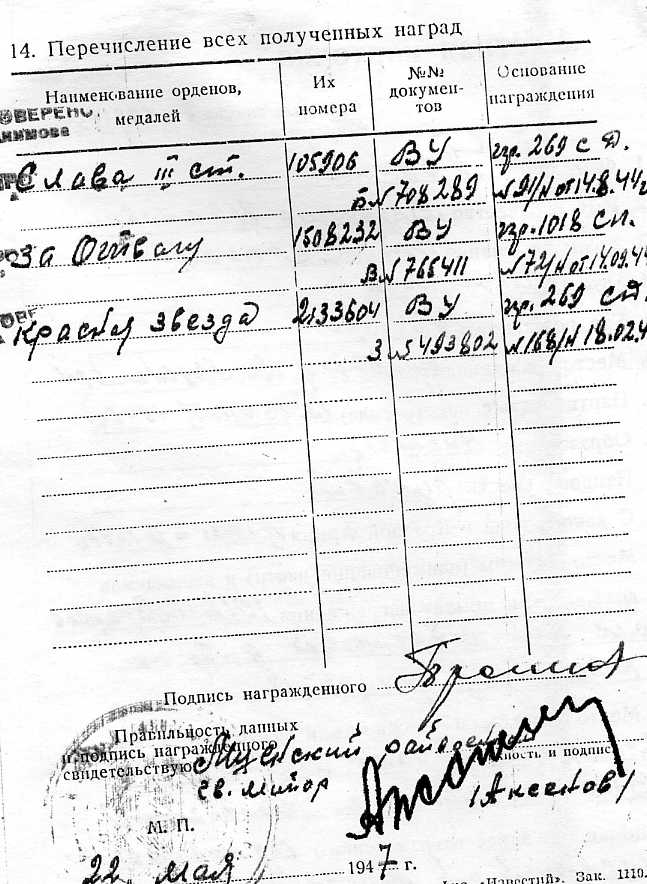 14. Перечисление всех полученных наград
Наименование орденов,
медалей
Их
номера
№№
докумен-
тов
Основание
награждения
Слава III ст. 105906 ВУ пр. 269 с д.
№ 708289 №91/н от 14.8.44г
За Отвагу 1508232 ВУ пр. 1018 сп.
В № 766411 от 14.09.44
Красная Звезда 2133604 ВУ пр. 269 сд.
З № 493802 №168/н 18.02.4
Подпись награжденного
Правильность данных
и подпись награжденного
свидетельствую
Гв. Майор
ность и подпись
/Аксенов/
М. П.
22 мая 1947 г.
«Известий». Зак. 1110.